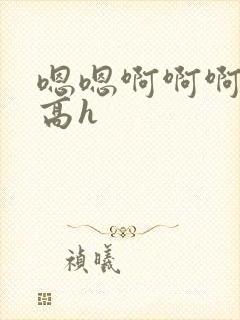 嗯嗯啊啊啊
高h
禎曦